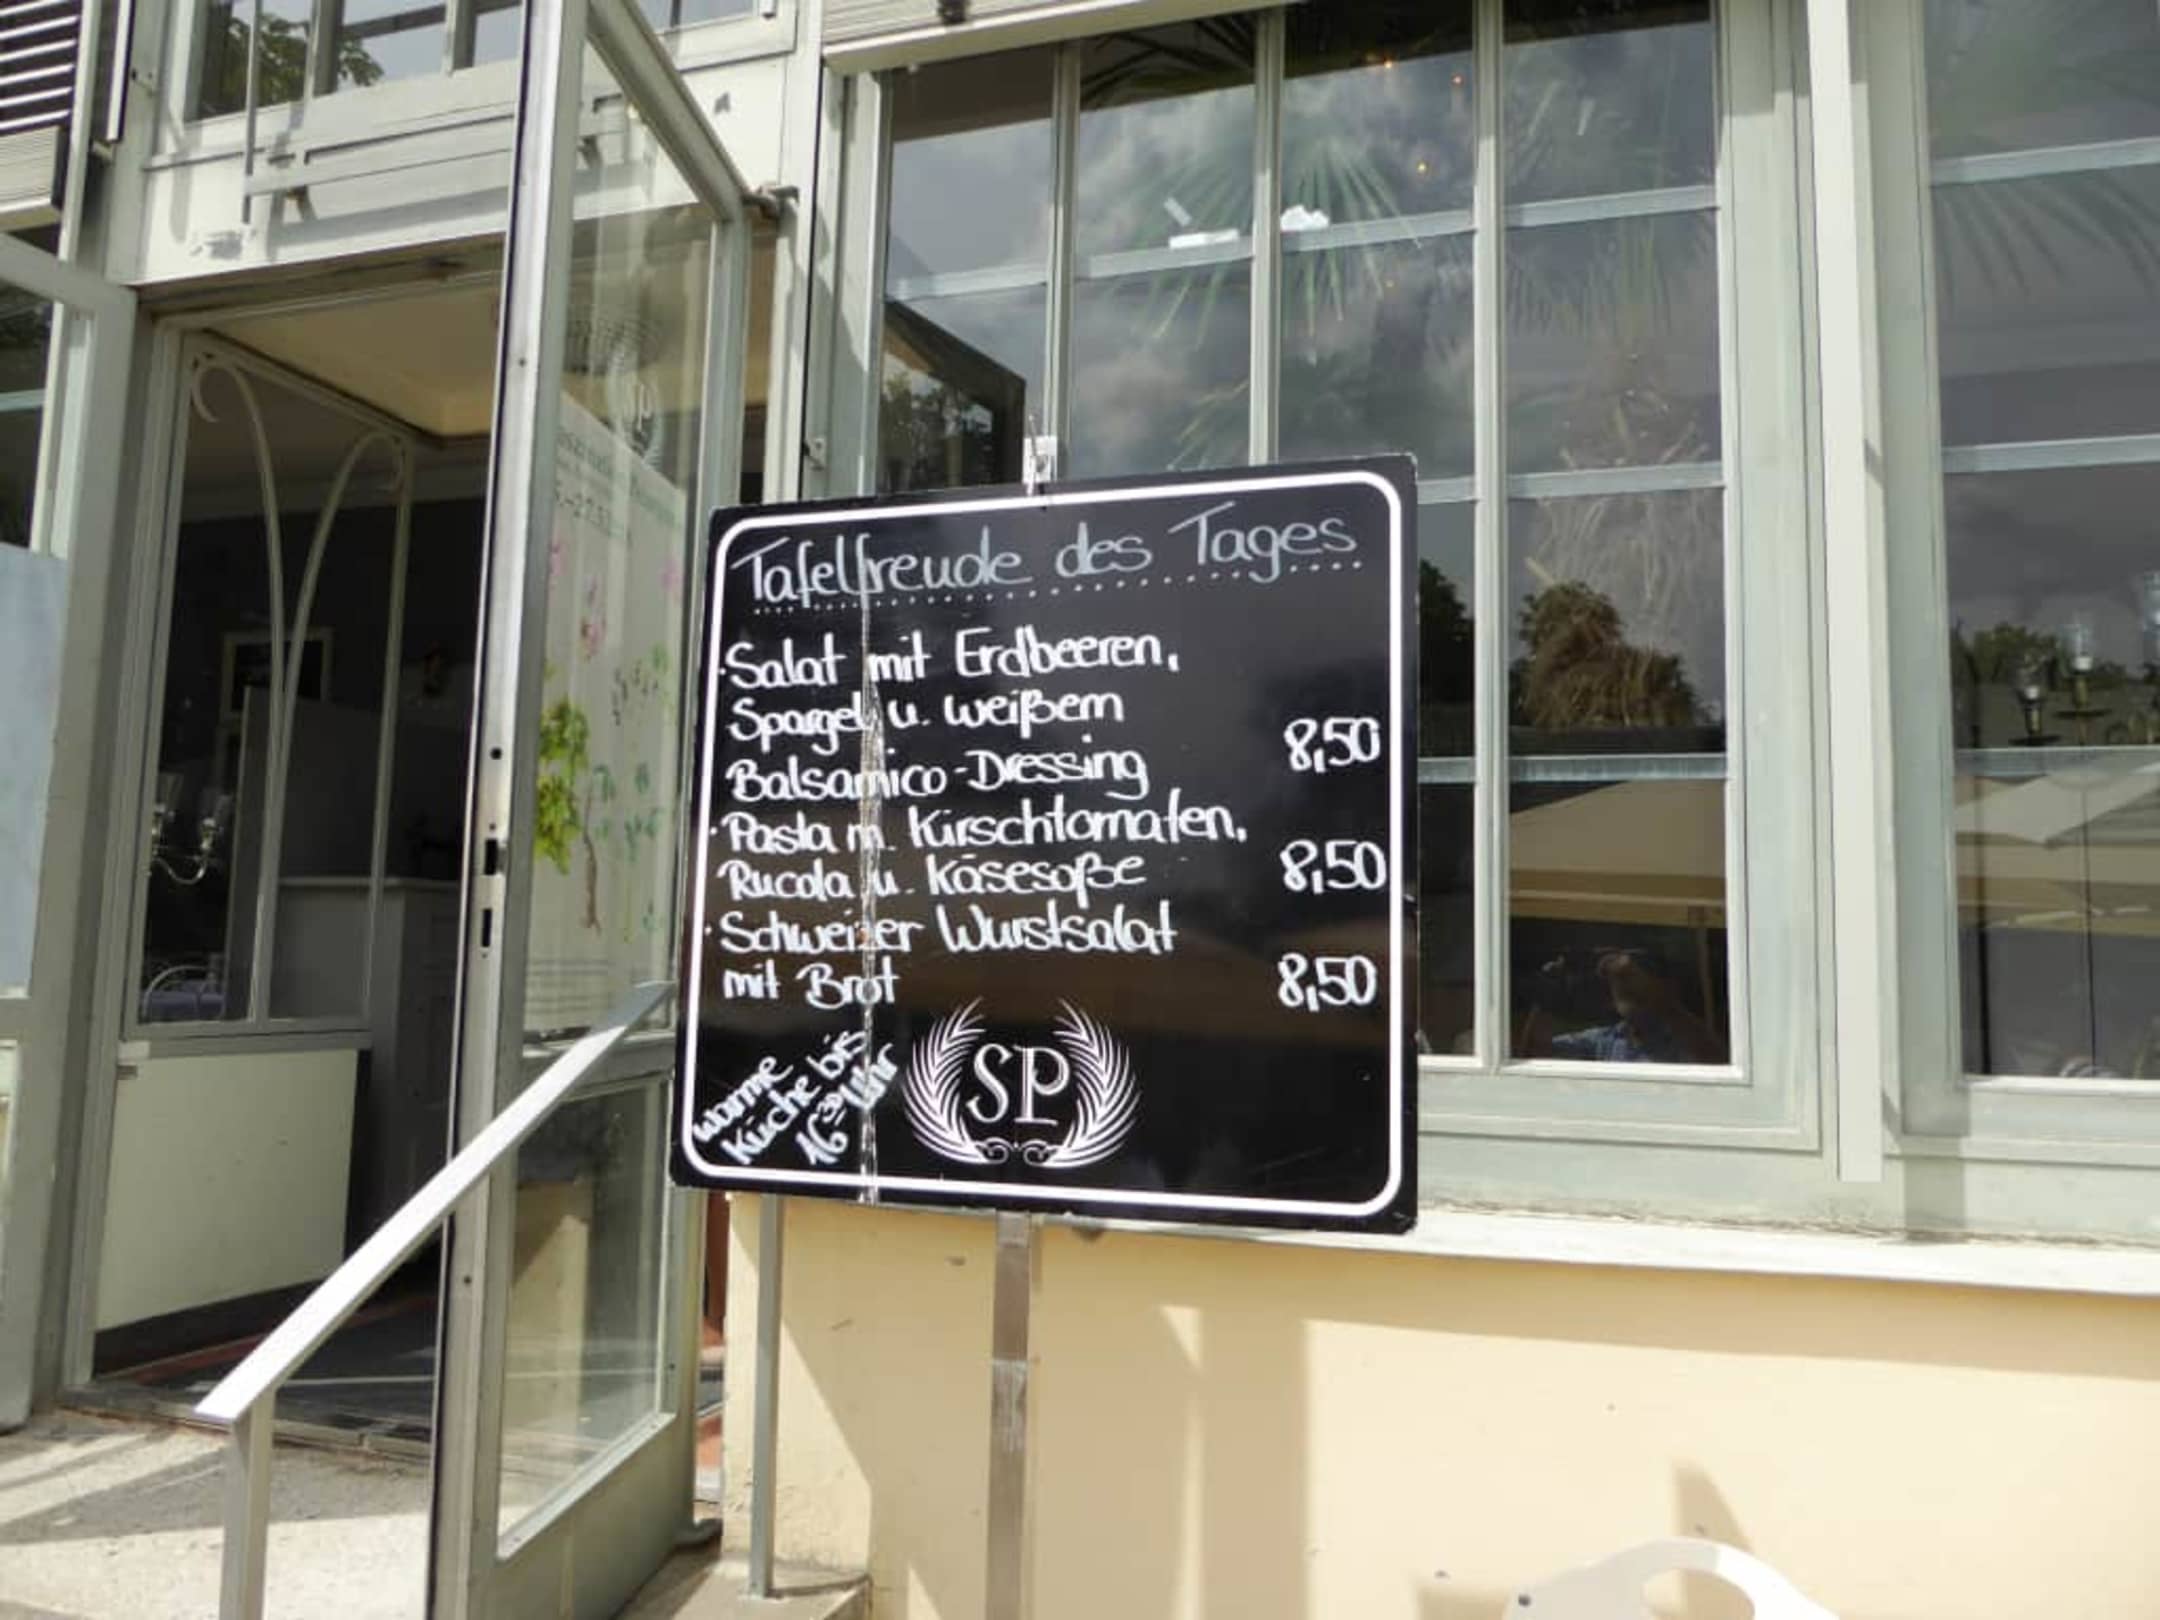 Tafelfreude des Tages
· Salat mit Erdbeeren,
Spargel u. weißem
Balsamico-Dressing 8,50
· Pasta m. Kirschtomaten,
Rucola u. Käsesoße 8,50
· Schweizer Wurstsalat
mit Brot 8,50
warme
Küche bis
16³⁰ Uhr
SP